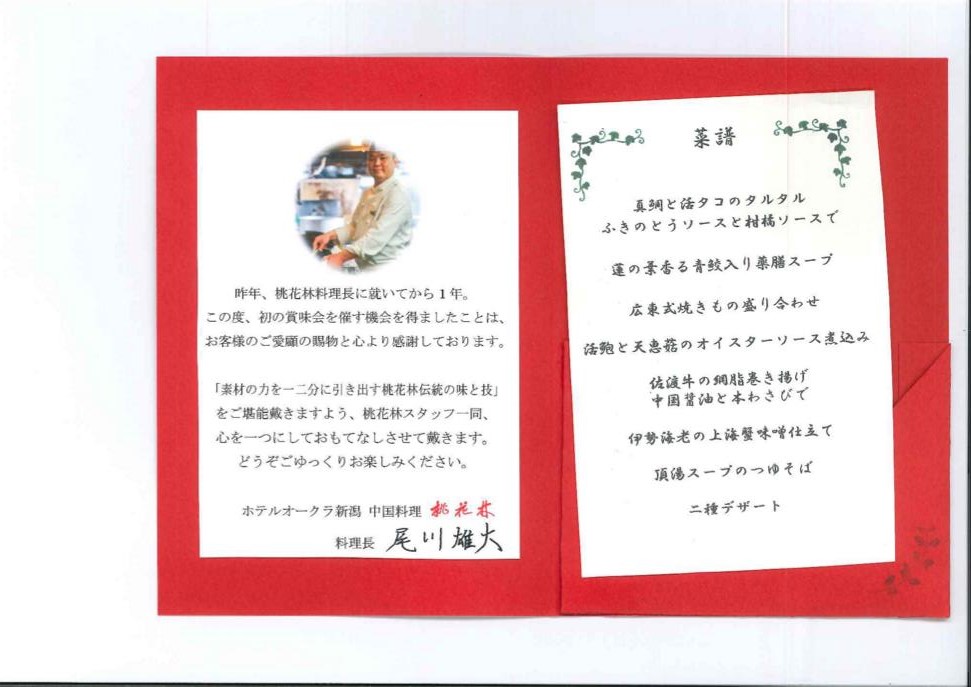 昨年、桃花林料理長に就いてから1年。
この度、初の賞味会を催す機会を得ましたことは、
お客様のご愛顧の賜物と心より感謝しております。
「素材の力を一二分に引き出す桃花林伝統の味と技」
をご堪能戴きますよう、桃花林スタッフ一同、
心を一つにしておもてなしさせて戴きます。
どうぞごゆっくりお楽しみください。
ホテルオークラ新潟 中国料理 桃花林
料理長 尾川雄大
菜譜
真鯛と活タコのタルタル
ふきのとうソースと柑橘ソースで
蓮の葉香る青鮫入り薬膳スープ
広東式焼きもの盛り合わせ
活鮑と天恵菇のオイスターソース煮込み
佐渡牛の網脂巻き揚げ
中国醤油と本わさびで
伊勢海老の上海蟹味噌仕立て
頂湯スープのつゆそば
二種デザート